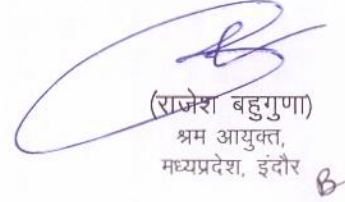 (राजेश बहुगुणा)
श्रम आयुक्त,
मध्यप्रदेश, इंदौर